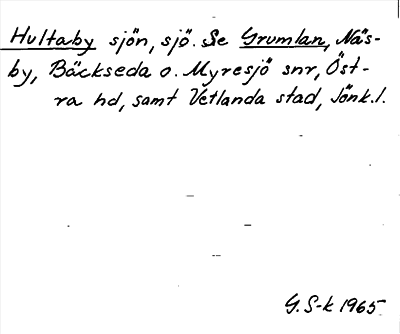 Hultaby sjön, sjö. Se Grumlan, Näs-
by, Bäckseda o. Myresjö snr, Öst-
ra hd, samt Vetlanda stad, Jönk.l.
G. S-k 1965